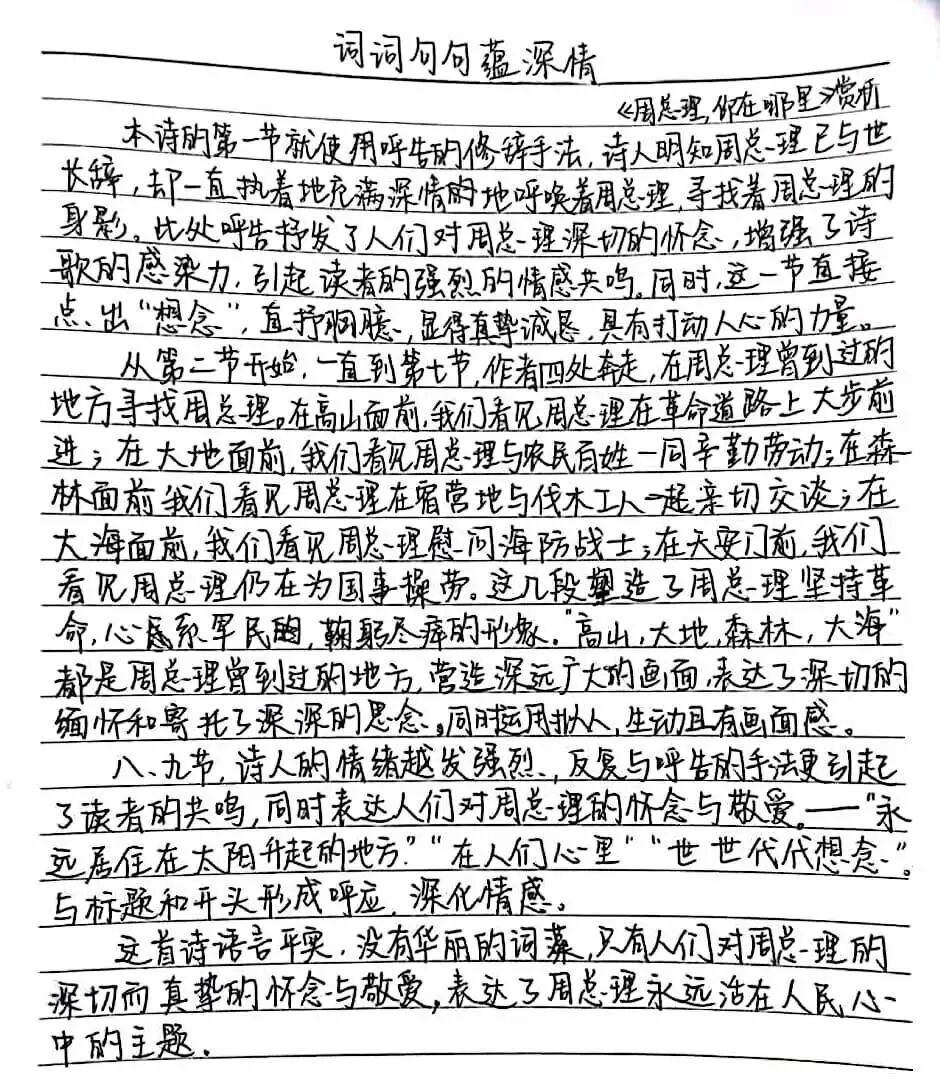 词词句句蕴深情
《周总理,你在哪里》赏析
本诗的第一节就使用呼告的修辞手法,诗人明知周总理已与世
长辞,却一直执着地充满深情的地呼唤着周总理,寻找着周总理的
身影。此处呼告抒发了人们对周总理深切的怀念,增强了诗
歌的感染力,引起读者的强烈的情感共鸣。同时,这一节直接
点出“想念”,直抒胸臆,显得真挚诚恳,具有打动人心的力量。
从第二节开始,一直到第七节,作者四处奔走,在周总理曾到过的
地方寻找周总理。在高山面前,我们看见周总理在革命道路上大步前
进;在大地面前,我们看见周总理与农民百姓一同辛勤劳动;在森
林面前我们看见周总理在宿营地与伐木工人一起亲切交谈;在
大海面前,我们看见周总理慰问海防战士;在天安门前,我们
看见周总理仍在为国事操劳。这几段塑造了周总理坚持革
命,心系军民的,鞠躬尽瘁的形象。“高山,大地,森林,大海”
都是周总理曾到过的地方,营造深远广大的画面,表达了深切的
缅怀和寄托了深深的思念。同时运用拟人,生动且有画面感。
八、九节,诗人的情绪越发强烈,反复与呼告的手法更引起
了读者的共鸣,同时表达人们对周总理的怀念与敬爱。——“永
远居住在太阳升起的地方?”“在人们心里”“世世代代想念”。
与标题和开头形成呼应,深化情感。
这首诗语言平实,没有华丽的词藻,只有人们对周总理的
深切而真挚的怀念与敬爱,表达了周总理永远活在人民心
中的主题.